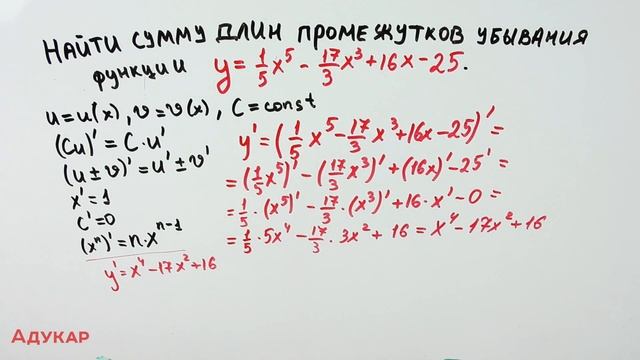 НАЙТИ СУММУ ДЛИН ПРОМЕЖУТКОВ УБЫВАНИЯ
ФУНКЦИИ y = 1/5 x⁵ - 17/3 x³ + 16x - 25.
u = u(x), v = v(x), C = const
(Cu)' = C · u'
(u ± v)' = u' ± v'
x' = 1
c' = 0
(xⁿ)' = n · xⁿ⁻¹
y' = x⁴ - 17x² + 16
y' = (1/5 x⁵ - 17/3 x³ + 16x - 25)' =
= (1/5 x⁵)' - (17/3 x³)' + (16x)' - 25' =
= 1/5 · (x⁵)' - 17/3 · (x³)' + 16 · x' - 0 =
= 1/5 · 5x⁴ - 17/3 · 3x² + 16 = x⁴ - 17x² + 16
Адукар